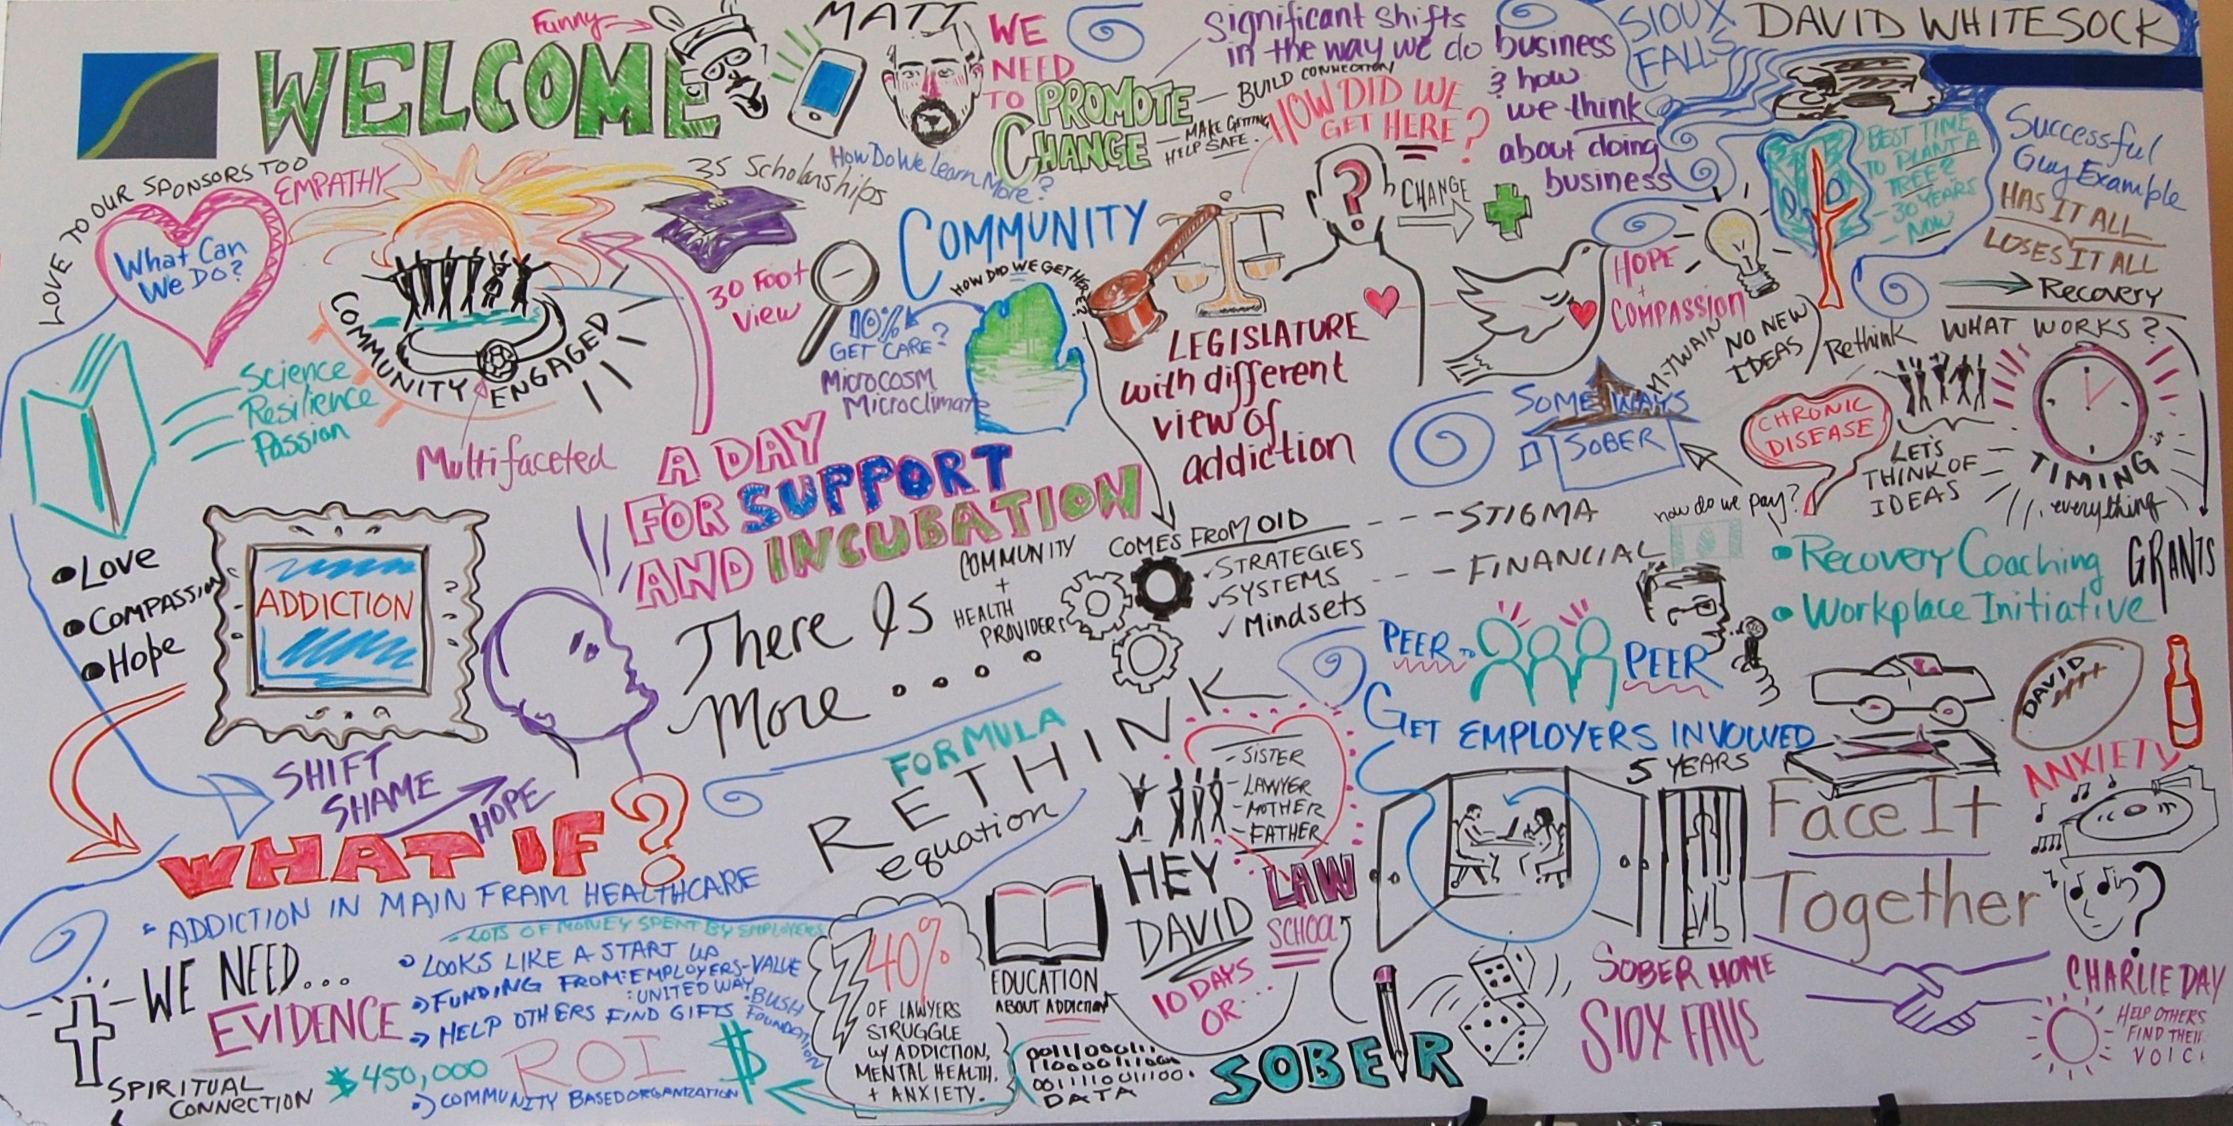 Funny
WELCOME
MATT
WE
NEED
TO
PROMOTE
CHANGE
BUILD CONNECTION
MAKE GETTING
HELP SAFE.
significant shifts
in the way we do business
& how
we think
about doing
business
HOW DID WE
GET HERE?
SIOUX
FALLS
DAVID WHITESOCK
Successful
Guy Example
HAS IT ALL
LOSES IT ALL
Recovery
BEST TIME
TO PLANT A
TREE?
- 30 YEARS
- NOW
LOVE TO OUR SPONSORS TOO
EMPATHY
What Can
We Do?
35 Scholarships
How Do We Learn More?
COMMUNITY
HOW DID WE GET HERE?
30 FOOT
View
10%
GET CARE?
Microcosm
Microclimate
CHANGE
?
LEGISLATURE
with different
view of
addiction
HOPE
+
COMPASSION
M-TWAIN
NO NEW
IDEAS
Rethink
WHAT WORKS?
COMMUNITY ENGAGED
Multifaceted
Science
Resilience
Passion
SOME WAYS
SOBER
CHRONIC
DISEASE
LET'S
THINK OF
IDEAS
TIMING
everything
how do we pay?
A DAY
FOR SUPPORT
AND INCUBATION
• Love
• Compassion
• Hope
ADDICTION
There Is
More....
COMMUNITY
+
HEALTH
PROVIDERS
COMES FROM OLD
✓ STRATEGIES
✓ SYSTEMS
✓ Mindsets
--- STIGMA
--- FINANCIAL
• Recovery Coaching
• Workplace Initiative
GRANTS
PEER TO PEER
GET EMPLOYERS INVOLVED
DAVID
ANXIETY
SHIFT
SHAME
HOPE
WHAT IF?
FORMULA
RETHINK
equation
- SISTER
- LAWYER
- MOTHER
- FATHER
HEY
DAVID
10 DAYS
OR...
LAW
SCHOOL
5 YEARS
Face It
Together
• ADDICTION IN MAIN FRAM HEALTHCARE
- LOTS OF MONEY SPENT BY EMPLOYERS
WE NEED...
EVIDENCE
• LOOKS LIKE A START UP
FUNDING FROM: EMPLOYERS-VALUE
: UNITED WAY
: BUSH
FOUNDATION
HELP OTHERS FIND GIFTS
ROI
$
$450,000
COMMUNITY BASED ORGANIZATION
SPIRITUAL
CONNECTION
40%
OF LAWYERS
STRUGGLE
w/ ADDICTION,
MENTAL HEALTH,
+ ANXIETY.
EDUCATION
ABOUT ADDICTION
DATA
SOBER
SOBER HOME
SIOX FALLS
?
CHARLIE DAY
HELP OTHERS
FIND THEIR
VOICE